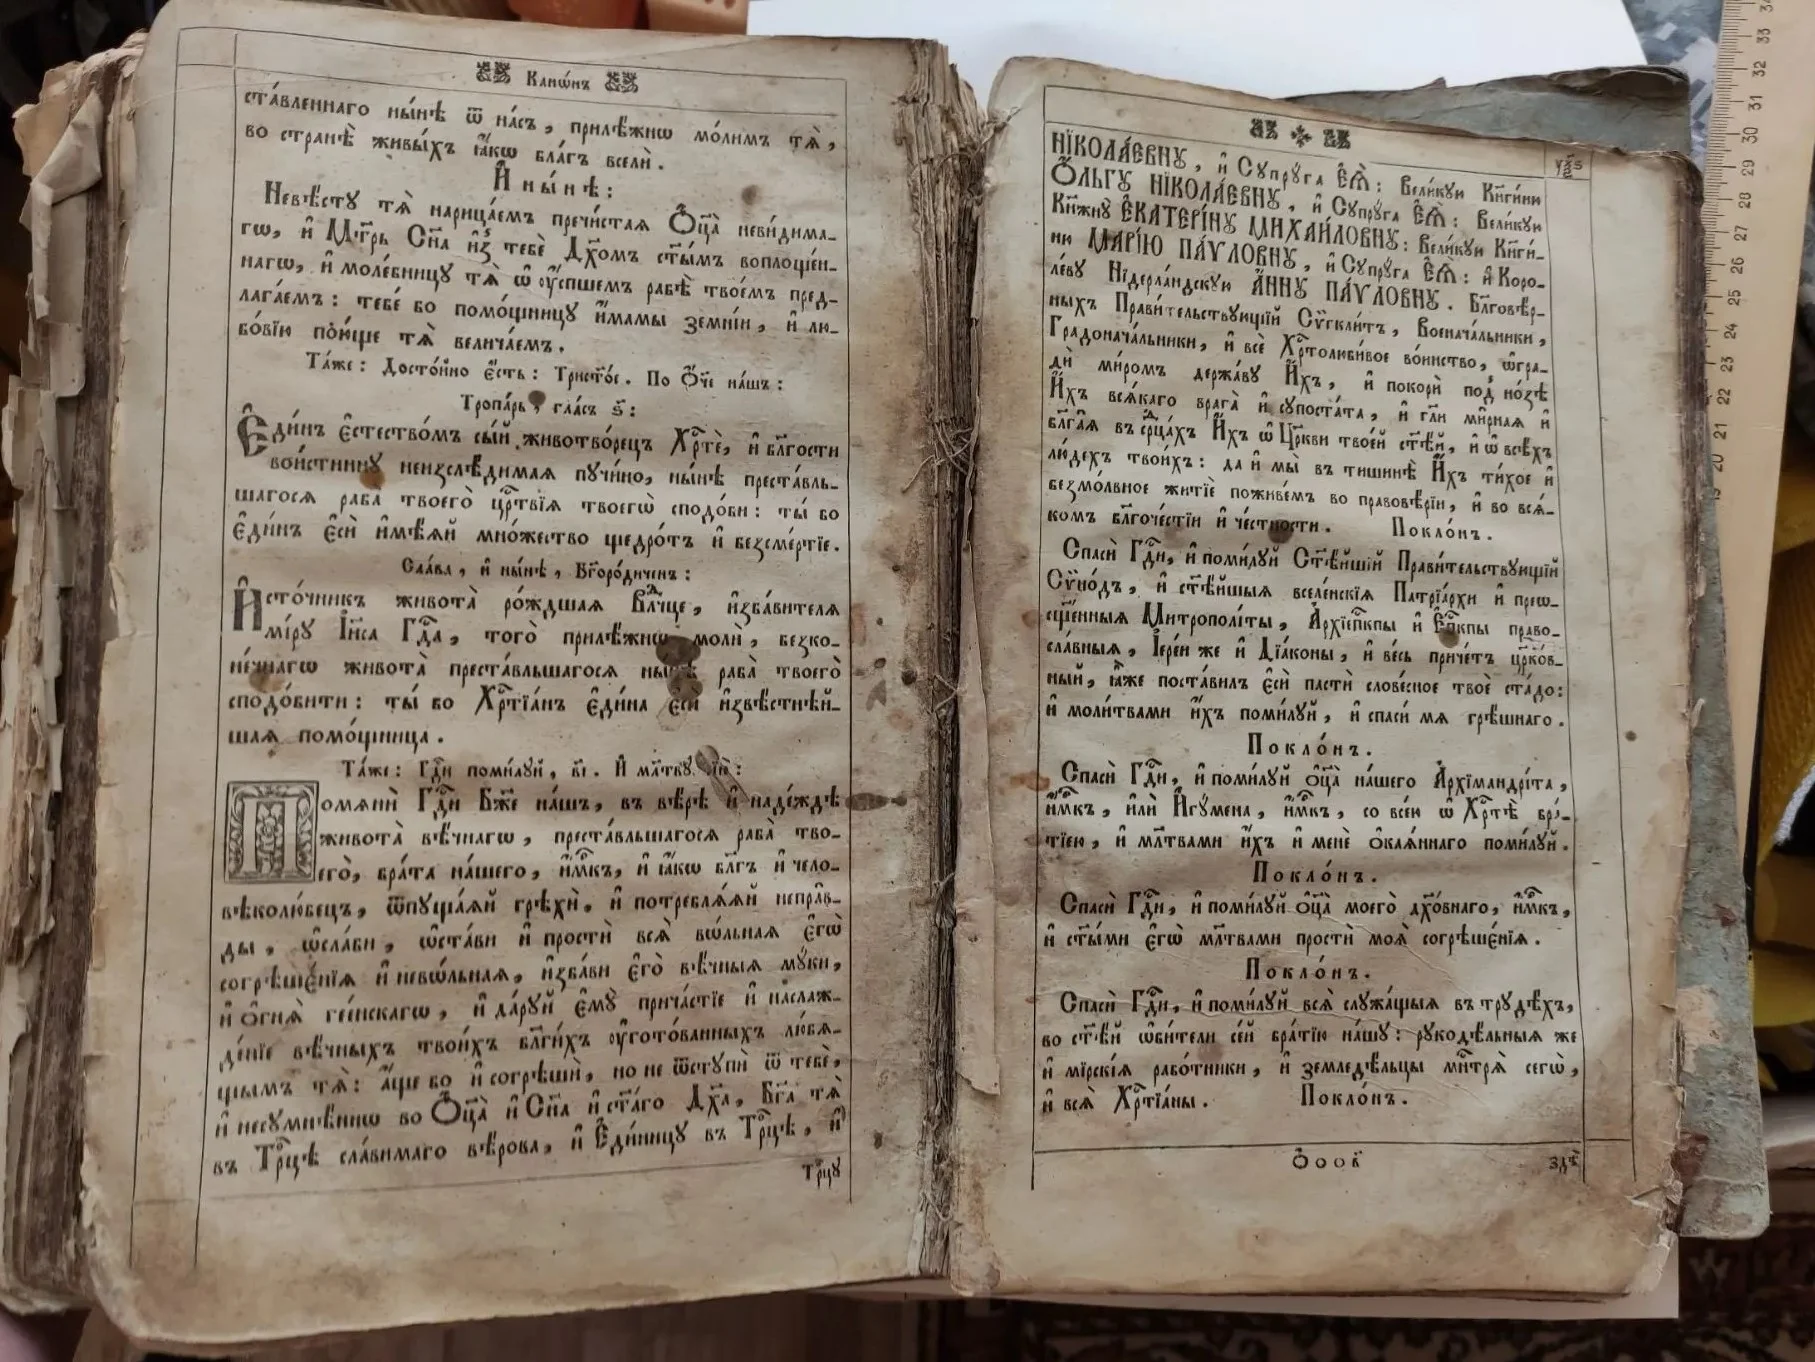 Канѡ́нъ
ста́вленнаго ны́нѣ ѿ на́съ, прилѣ́жнѡ мо́лимъ тѧ̀,
во странѣ̀ живы́хъ ꙗ҆́кѡ бла́гъ вселѝ.
И҆ ны́нѣ:
Невѣ́сту тѧ̀ нарица́емъ пречи́стаѧ Ѻ҆ц҃а̀ неви́дима-
гѡ, и҆ Мт҃рь Сн҃а и҆з̾ тебє̀ Дх҃омъ ст҃ы́мъ воплоще́н-
нагѡ, и҆ моле́бницу тѧ̀ ѡ҆ ᲂу҆со́пшемъ рабѣ̀ твое́мъ пред-
лага́емъ: тебе́ бо помо́щницу и҆́мамы земні́и, и҆ лю-
бо́вїю пою́ще тѧ̀ велича́емъ.
Та́же: Досто́йно є҆́сть: Трист҃о́е. По Ѻ҆́ч҃е на́шъ:
Тропа́рь, гла́съ ѕ҃:
Є҆ди́нъ є҆стество́мъ сы́й животво́рецъ Хрт҇ѐ, и҆ бл҃гости
вои́стинну неизслѣ́димаѧ пучи́но, ны́нѣ преста́вль-
шагосѧ раба̀ твоегѡ̀ црⷭ҇твїѧ твоегѡ̀ сподо́би: ты́ бо
є҆ди́нъ є҆сѝ и҆мѣ́ѧй мно́жество щедро́тъ и҆ безсме́ртїе.
Сла́ва, и҆ ны́нѣ, Бг҃оро́диченъ:
И҆сто́чникъ живота̀ ро́ждшаѧ Влⷣчце, и҆зба́вителѧ
мі́ру І҆и҃са Гдⷭ҇а, того̀ прилѣ́жнѡ молѝ, безко-
не́чнагѡ живота̀ преста́вльшагосѧ ны́нѣ раба̀ твоего̀
сподо́бити: ты́ бо Хрⷭ҇тїа́нъ є҆ди́на є҆сѝ и҆звѣ́стнѣй-
шаѧ помо́щница.
Та́же: Гдⷭ҇и поми́луй, в҃і. И҆ мл҃тву сїю̀:
Помѧнѝ Гдⷭ҇и Бж҃е на́шъ, въ вѣ́рѣ и҆ наде́ждѣ
живота̀ вѣ́чнагѡ, преста́вльшагосѧ раба̀ тво-
его̀, бра́та на́шего, и҆́м҃къ, и҆ ꙗ҆́кѡ бл҃гъ и҆ чело-
вѣколю́бецъ, ѿпуща́ѧй грѣхѝ, и҆ потреблѧ́ѧй непра́в-
ды, ѡ҆сла́би, ѡ҆ста́ви и҆ простѝ всѧ̑ вѡ́льнаѧ є҆гѡ̀
согрѣшє́нїѧ и҆ невѡ́льнаѧ, и҆зба́ви є҆го̀ вѣ́чныѧ му́ки,
и҆ ѻ҆гнѧ̀ гее́нскагѡ, и҆ да́руй є҆мꙋ̀ прича́стїе и҆ наслаж-
де́нїе вѣ́чныхъ твои́хъ бл҃ги́хъ ᲂу҆гото́ванныхъ лю́бѧ-
щымъ тѧ̀: а҆́ще бо и҆ согрѣшѝ, но не ѿступѝ ѿ тебє̀,
и҆ несумнѣ́ннѡ во Ѻ҆ц҃а̀ и҆ Сн҃а и҆ ст҃а́го Дх҃а, Бг҃а тѧ̀
въ Трⷪ҇цѣ сла́вимаго вѣ́рова, и҆ Є҆ди́ницу въ Трⷪ҇цѣ, и҆
Трⷪ҇цу
НІКОЛА́ЕВНУ, и҆ Супру́га Є҆Ѧ̀: Вели́кую Кнⷤги́ню
Ѻ҆́ЛЬГУ НІКОЛА́ЕВНУ, и҆ Супру́га Є҆Ѧ̀: Вели́кую
Кнⷤжну̀ Є҆КАТЕРІ́НУ МИХА́ИЛОВНУ: Вели́кую Кнⷤги́-
ню МАРІ́Ю ПА́УЛОВНУ, и҆ Супру́га Є҆Ѧ̀: и҆ Коро-
ле́ву Нїдерла́ндскую А҆́ННУ ПА́УЛОВНУ. Бл҃говѣ́р-
ныхъ Прави́тельствующїй Сѷгкли́тъ, Военача́льники,
Градонача́льники, и҆ всѐ Хрⷭ҇толюби́вое во́инство, ѡ҆гра-
дѝ ми́ромъ держа́ву И҆́хъ, и҆ покорѝ под̾ но́зѣ
И҆́хъ всѧ́каго врага̀ и҆ супоста́та, и҆ гл҃и ми̑рнаѧ и҆
бл҃га̑ѧ въ срⷣца́хъ И҆́хъ ѡ҆ Цр҃кви твое́й ст҃ѣ́й, и҆ ѡ҆ всѣ́хъ
лю́дехъ твои́хъ: да и҆ мы̀ въ тишинѣ̀ И҆́хъ ти́хое и҆
безмо́лвное житїѐ поживе́мъ во правовѣ́рїи, и҆ во всѧ́-
комъ бл҃гоче́стїи и҆ че́стности. Покло́нъ.
Спасѝ Гдⷭ҇и, и҆ поми́луй Ст҃ѣ́йшїй Прави́тельствующїй
Сѷно́дъ, и҆ ст҃ѣ́йшыѧ вселе́нскїѧ Патрїа́рхи и҆ прео-
сщ҃е́нныѧ Митрополі́ты, А҆рхїепⷭ҇кпы и҆ Є҆пⷭ҇кпы право-
сла́вныѧ, І҆ере́и же и҆ Дїа́коны, и҆ ве́сь при́четъ цр҃ко́в-
ный, ꙗ҆̀же поста́вилъ є҆сѝ пастѝ слове́сное твоѐ ста́до:
и҆ моли́твами и҆́хъ поми́луй, и҆ спасѝ мѧ грѣ́шнаго.
Покло́нъ.
Спасѝ Гдⷭ҇и, и҆ поми́луй ѻ҆ц҃а̀ на́шего А҆рхїмандрі́та,
и҆́м҃къ, и҆лѝ И҆гу́мена, и҆́м҃къ, со все́ю ѡ҆ Хрⷭ҇тѣ̀ бра́-
тїею, и҆ мл҃твами и҆́хъ и҆ менѐ ѻ҆каѧ́ннаго поми́луй.
Покло́нъ.
Спасѝ Гдⷭ҇и, и҆ поми́луй ѻ҆ц҃а̀ моего̀ дх҃о́внаго, и҆́м҃къ,
и҆ ст҃ы́ми є҆гѡ̀ мл҃твами простѝ моѧ̑ согрѣшє́нїѧ.
Покло́нъ.
Спасѝ Гдⷭ҇и, и҆ поми́луй всѧ̑ служа́щыѧ въ трудѣ́хъ,
во ст҃ѣ́й ѡ҆би́тели се́й бра́тїю на́шу: рукодѣ̑льныѧ же
и҆ мїрскі́ѧ рабо́тники, и҆ земледѣ́льцы мн҃трѧ̀ сегѡ̀,
и҆ всѧ̑ Хрⷭ҇тїа́ны. Покло́нъ.
34
33
32
31
30
29
28
27
26
25
24
23
22
21
20